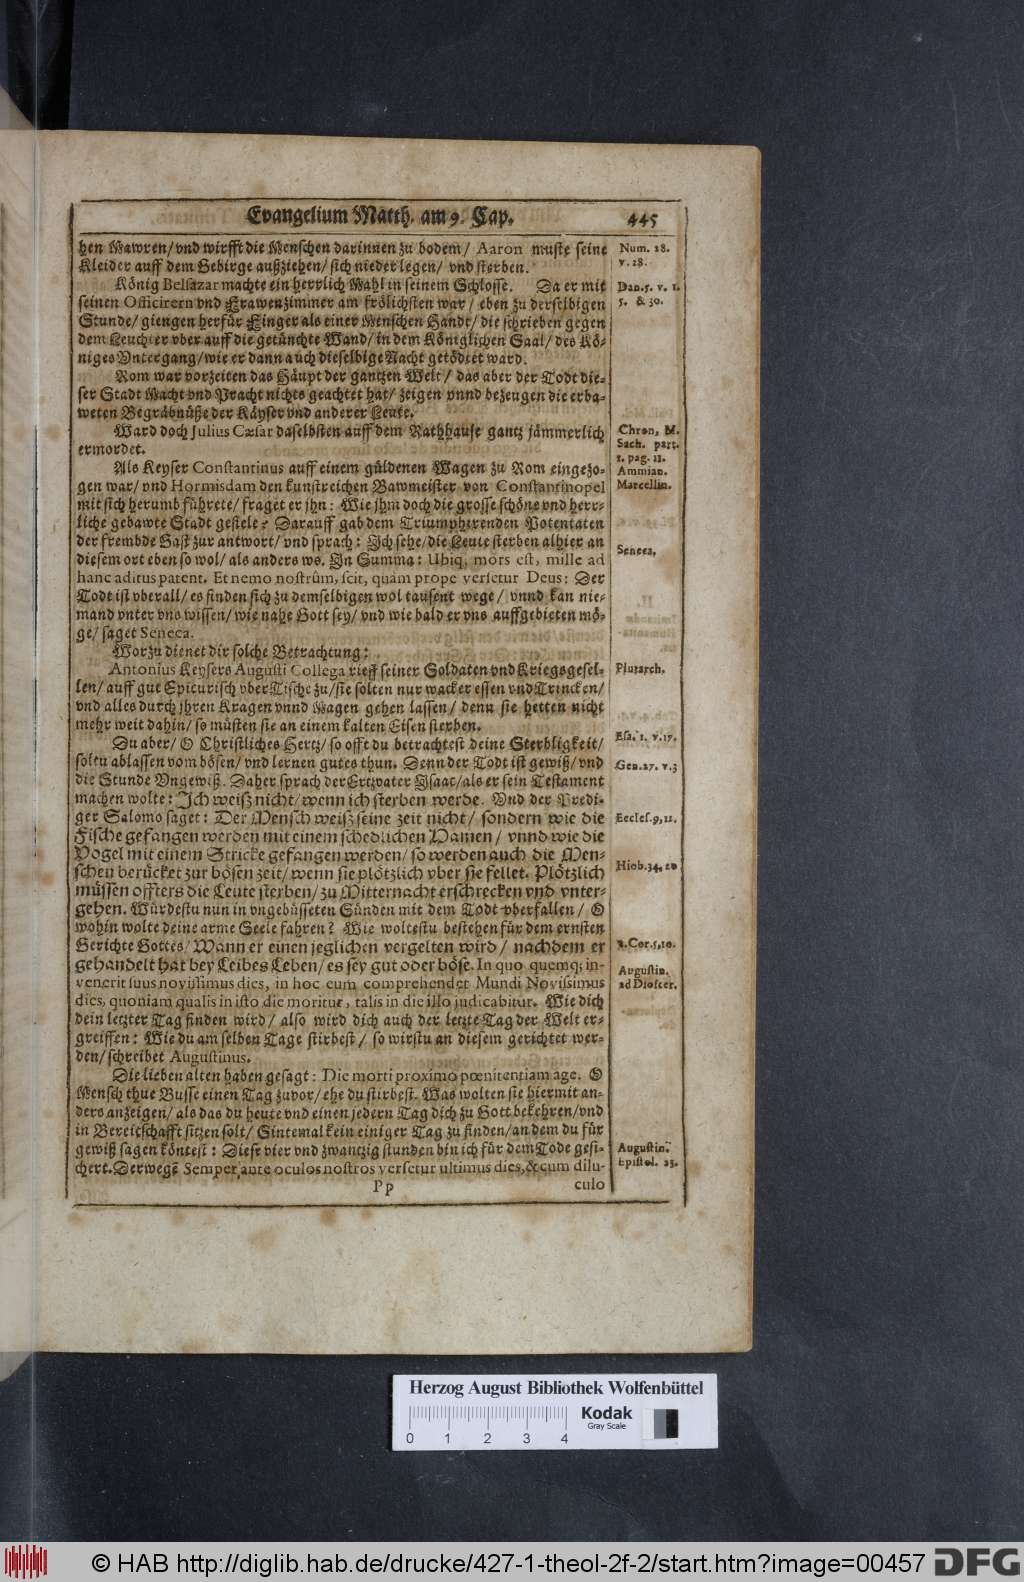 Evangelium Matth. am 9. Cap. 445
hen Mawren/ vnd wirfft die Menschen darinnen zu bodem/ Aaron muste seine
Kleider auff dem Gebirge außziehen/ sich nieder legen/ vnd sterben.
Num. 28.
v. 28.
König Belsazar machte ein herrlich Mahl in seinem Schlosse. Da er mit
seinen Officirern vnd Frawenzimmer am frölichsten war/ eben zu derselbigen
Stunde/ giengen herfür Finger als einer Menschen Handt/ die schrieben gegen
dem Leuchter vber auff die getünchte Wand/ in dem Königlichen Saal/ des Kö-
niges Vntergang/ wie er dann auch dieselbige Nacht getödtet ward.
Dan. 5. v. 1.
5. & 30.
Rom war vorzeiten das Häupt der gantzen Welt/ das aber der Todt die-
ser Stadt Macht vnd Pracht nichts geachtet hat/ zeigen vnnd bezeugen die erba-
weten Begräbnüße der Käyser vnd anderer Leute.
Ward doch Julius Cæsar daselbsten auff dem Rathhause gantz jämmerlich
ermordet.
Chron. M.
Sach. part.
1. pag. 11.
Als Keyser Constantinus auff einem güldenen Wagen zu Rom eingezo-
gen war/ vnd Hormisdam den kunstreichen Bawmeister von Constantinopel
mit sich herumb führete/ fraget er jhn: Wie jhm doch die grosse schöne vnd herr-
liche gebawte Stadt gefiele? Darauff gab dem Triumphirenden Potentaten
der frembde Gast zur antwort/ vnd sprach: Ich sehe/ die Leute sterben alhier an
diesem ort eben so wol/ als anders wo. In Summa: Ubiq; mors est, mille ad
hanc aditus patent. Et nemo nostrûm, scit, quàm prope versetur Deus: Der
Todt ist vberall/ es finden sich zu demselbigen wol tausent wege/ vnnd kan nie-
mand vnter vns wissen/ wie nahe Gott sey/ vnd wie bald er vns auffgebieten mö-
ge/ saget Seneca.
Ammian.
Marcellin.
Seneca.
Worzu dienet dir solche Betrachtung:
Antonius Keysers Augusti Collega rieff seiner Soldaten vnd Kriegsgesel-
len/ auff gut Epicurisch vber Tische zu/ sie solten nur wacker essen vnd Trincken/
vnd alles durch jhren Kragen vnnd Magen gehen lassen/ denn sie hetten nicht
mehr weit dahin/ so müsten sie an einem kalten Eisen sterben.
Plutarch.
Du aber/ O Christliches Hertz/ so offt du betrachtest deine Sterbligkeit/
soltu ablassen vom bösen/ vnd lernen gutes thun. Denn der Todt ist gewiß/ vnd
die Stunde Vngewiß. Daher sprach der Ertzvater Isaac/ als er sein Testament
machen wolte: Ich weiß nicht/ wenn ich sterben werde. Vnd der Predi-
ger Salomo saget: Der Mensch weiß seine zeit nicht/ sondern wie die
Fische gefangen werden mit einem schedlichen Hamen/ vnnd wie die
Vogel mit einem Stricke gefangen werden/ so werden auch die Men-
schen berücket zur bösen zeit/ wenn sie plötzlich vber sie fellet. Plötzlich
müssen offters die Leute sterben/ zu Mitternacht erschrecken vnd vnter-
gehen. Würdestu nun in vngebüsseten Sünden mit dem Todt vberfallen/ O
wohin wolte deine arme Seele fahren? Wie woltestu bestehen für dem ernsten
Gerichte Gottes/ Wann er einen jeglichen vergelten wird/ nachdem er
gehandelt hat bey Leibes Leben/ es sey gut oder böse. In quo quemq; in-
venerit suus novissimus dies, in hoc eum comprehendet Mundi Novissimus
dies, quoniam qualis in isto die moritur, talis in die illo judicabitur. Wie dich
dein letzter Tag finden wird/ also wird dich auch der letzte Tag der Welt er-
greiffen: Wie du am selben Tage stirbest/ so wirstu an diesem gerichtet wer-
den/ schreibet Augustinus.
Esa. 1. v. 17.
Gen. 27. v. 3
Eccles. 9, 12.
Hiob. 34, 20
2. Cor. 5, 10.
Augustin.
ad Dioscer.
Die lieben alten haben gesagt: Die morti proximo pœnitentiam age. O
Mensch thue Busse einen Tag zuvor/ ehe du stirbest. Was wolten sie hiermit an-
ders anzeigen/ als das du heute vnd einen jedern Tag dich zu Gott bekehren/ vnd
in Bereitschafft sitzen solt/ Sintemal kein einiger Tag zu finden/ an dem du für
gewiß sagen köntest: Diese vier vnd zwantzig stunden bin ich für dem Tode gesi-
chert. Derwegẽ Semper ante oculos nostros versetur ultimus dies, & cum dilu-
Augustin.
Epistol. 25.
Pp culo
Herzog August Bibliothek Wolfenbüttel
Kodak
Gray Scale
0 1 2 3 4
© HAB http://diglib.hab.de/drucke/427-1-theol-2f-2/start.htm?image=00457 DFG